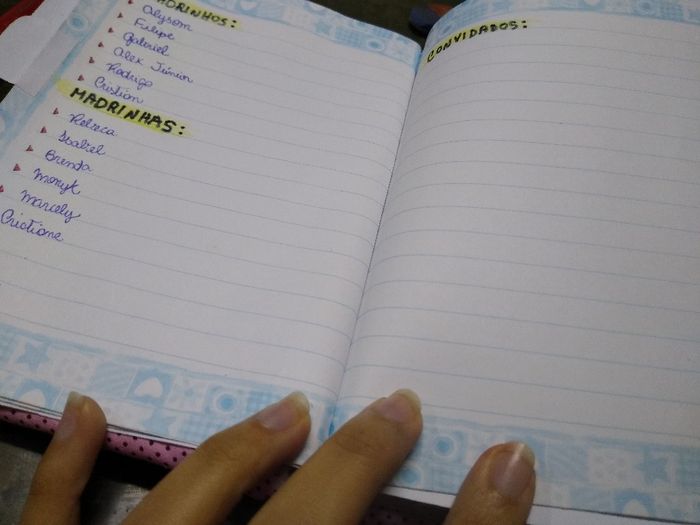 PADRINHOS:
Alyson
Felipe
Gabriel
Alex Júnior
Rodrigo
Cristian
MADRINHAS:
Rebeca
Isabel
Brenda
Monyk
Marcely
Cristiane
CONVIDADOS: